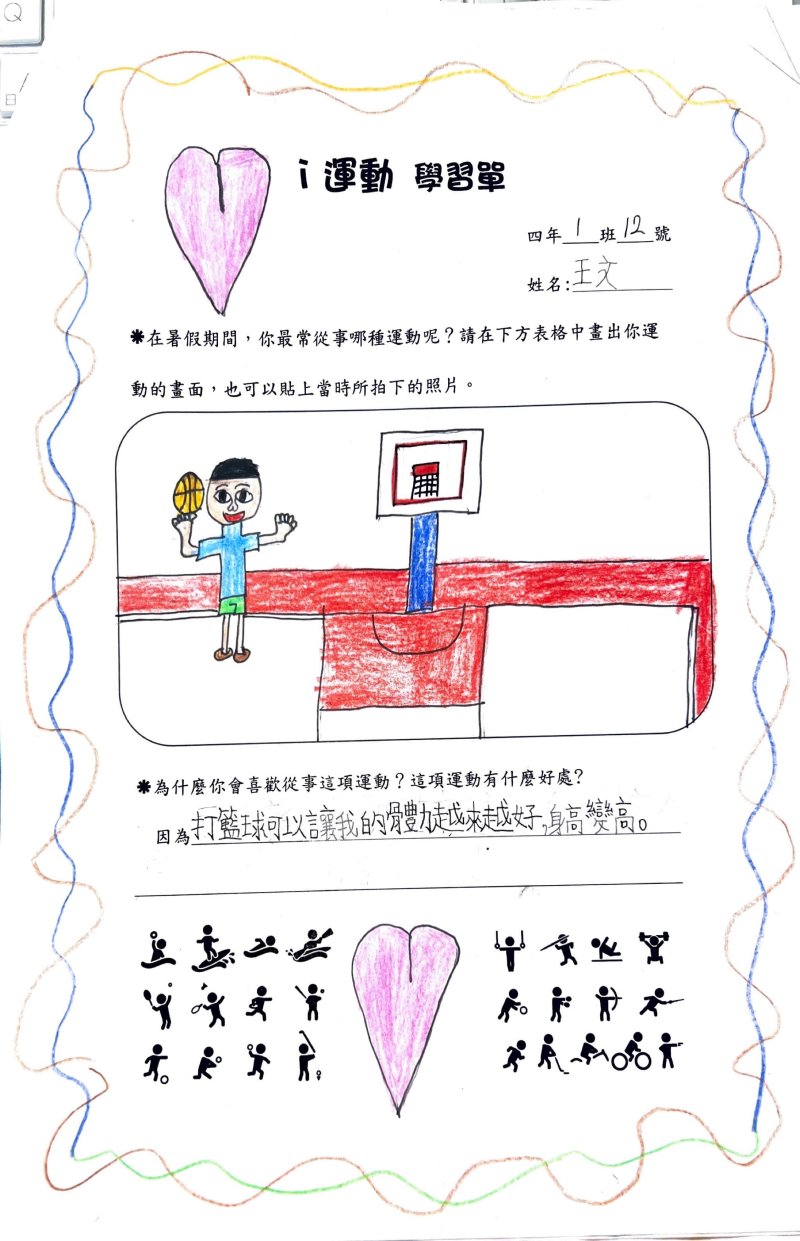 Q
日
i 運動 學習單
四年 1 班 12 號
姓名:王文
✱在暑假期間，你最常從事哪種運動呢？請在下方表格中畫出你運
動的畫面，也可以貼上當時所拍下的照片。
✱為什麼你會喜歡從事這項運動？這項運動有什麼好處?
因為打籃球可以讓我的體力越來越好,身高變高。